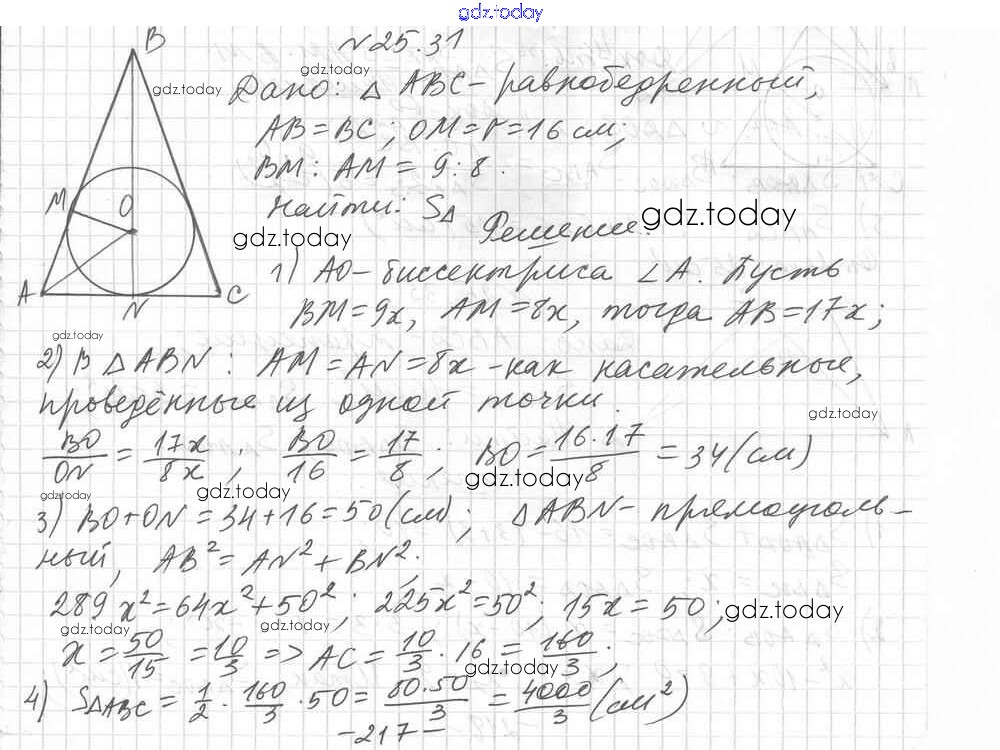 gdz.today
№25.31
gdz.today
gdz.today
Дано: △ ABC - равнобедренный,
AB = BC; OM = r = 16 см;
BM : AM = 9 : 8.
Найти: S△
gdz.today
gdz.today
Решение:
B
M
O
A
N
C
1) AO - биссектриса ∠A. Пусть
BM = 9x, AM = 8x, тогда AB = 17x;
gdz.today
2) В △ ABN: AM = AN = 8x - как касательные,
проведённые из одной точки.
gdz.today
BO/ON = 17x/8x; BO/16 = 17/8; BO = 16·17/8 = 34 (см)
gdz.today
gdz.today
gdz.today
3) BO + ON = 34 + 16 = 50 (см); △ABN - прямоуголь-
ный, AB² = AN² + BN².
289x² = 64x² + 50²; 225x² = 50²; 15x = 50;
gdz.today
gdz.today
gdz.today
x = 50/15 = 10/3 => AC = 10/3 · 16 = 160/3;
gdz.today
4) S△ABC = 1/2 · 160/3 · 50 = 80·50/3 = 4000/3 (см²)
-217-